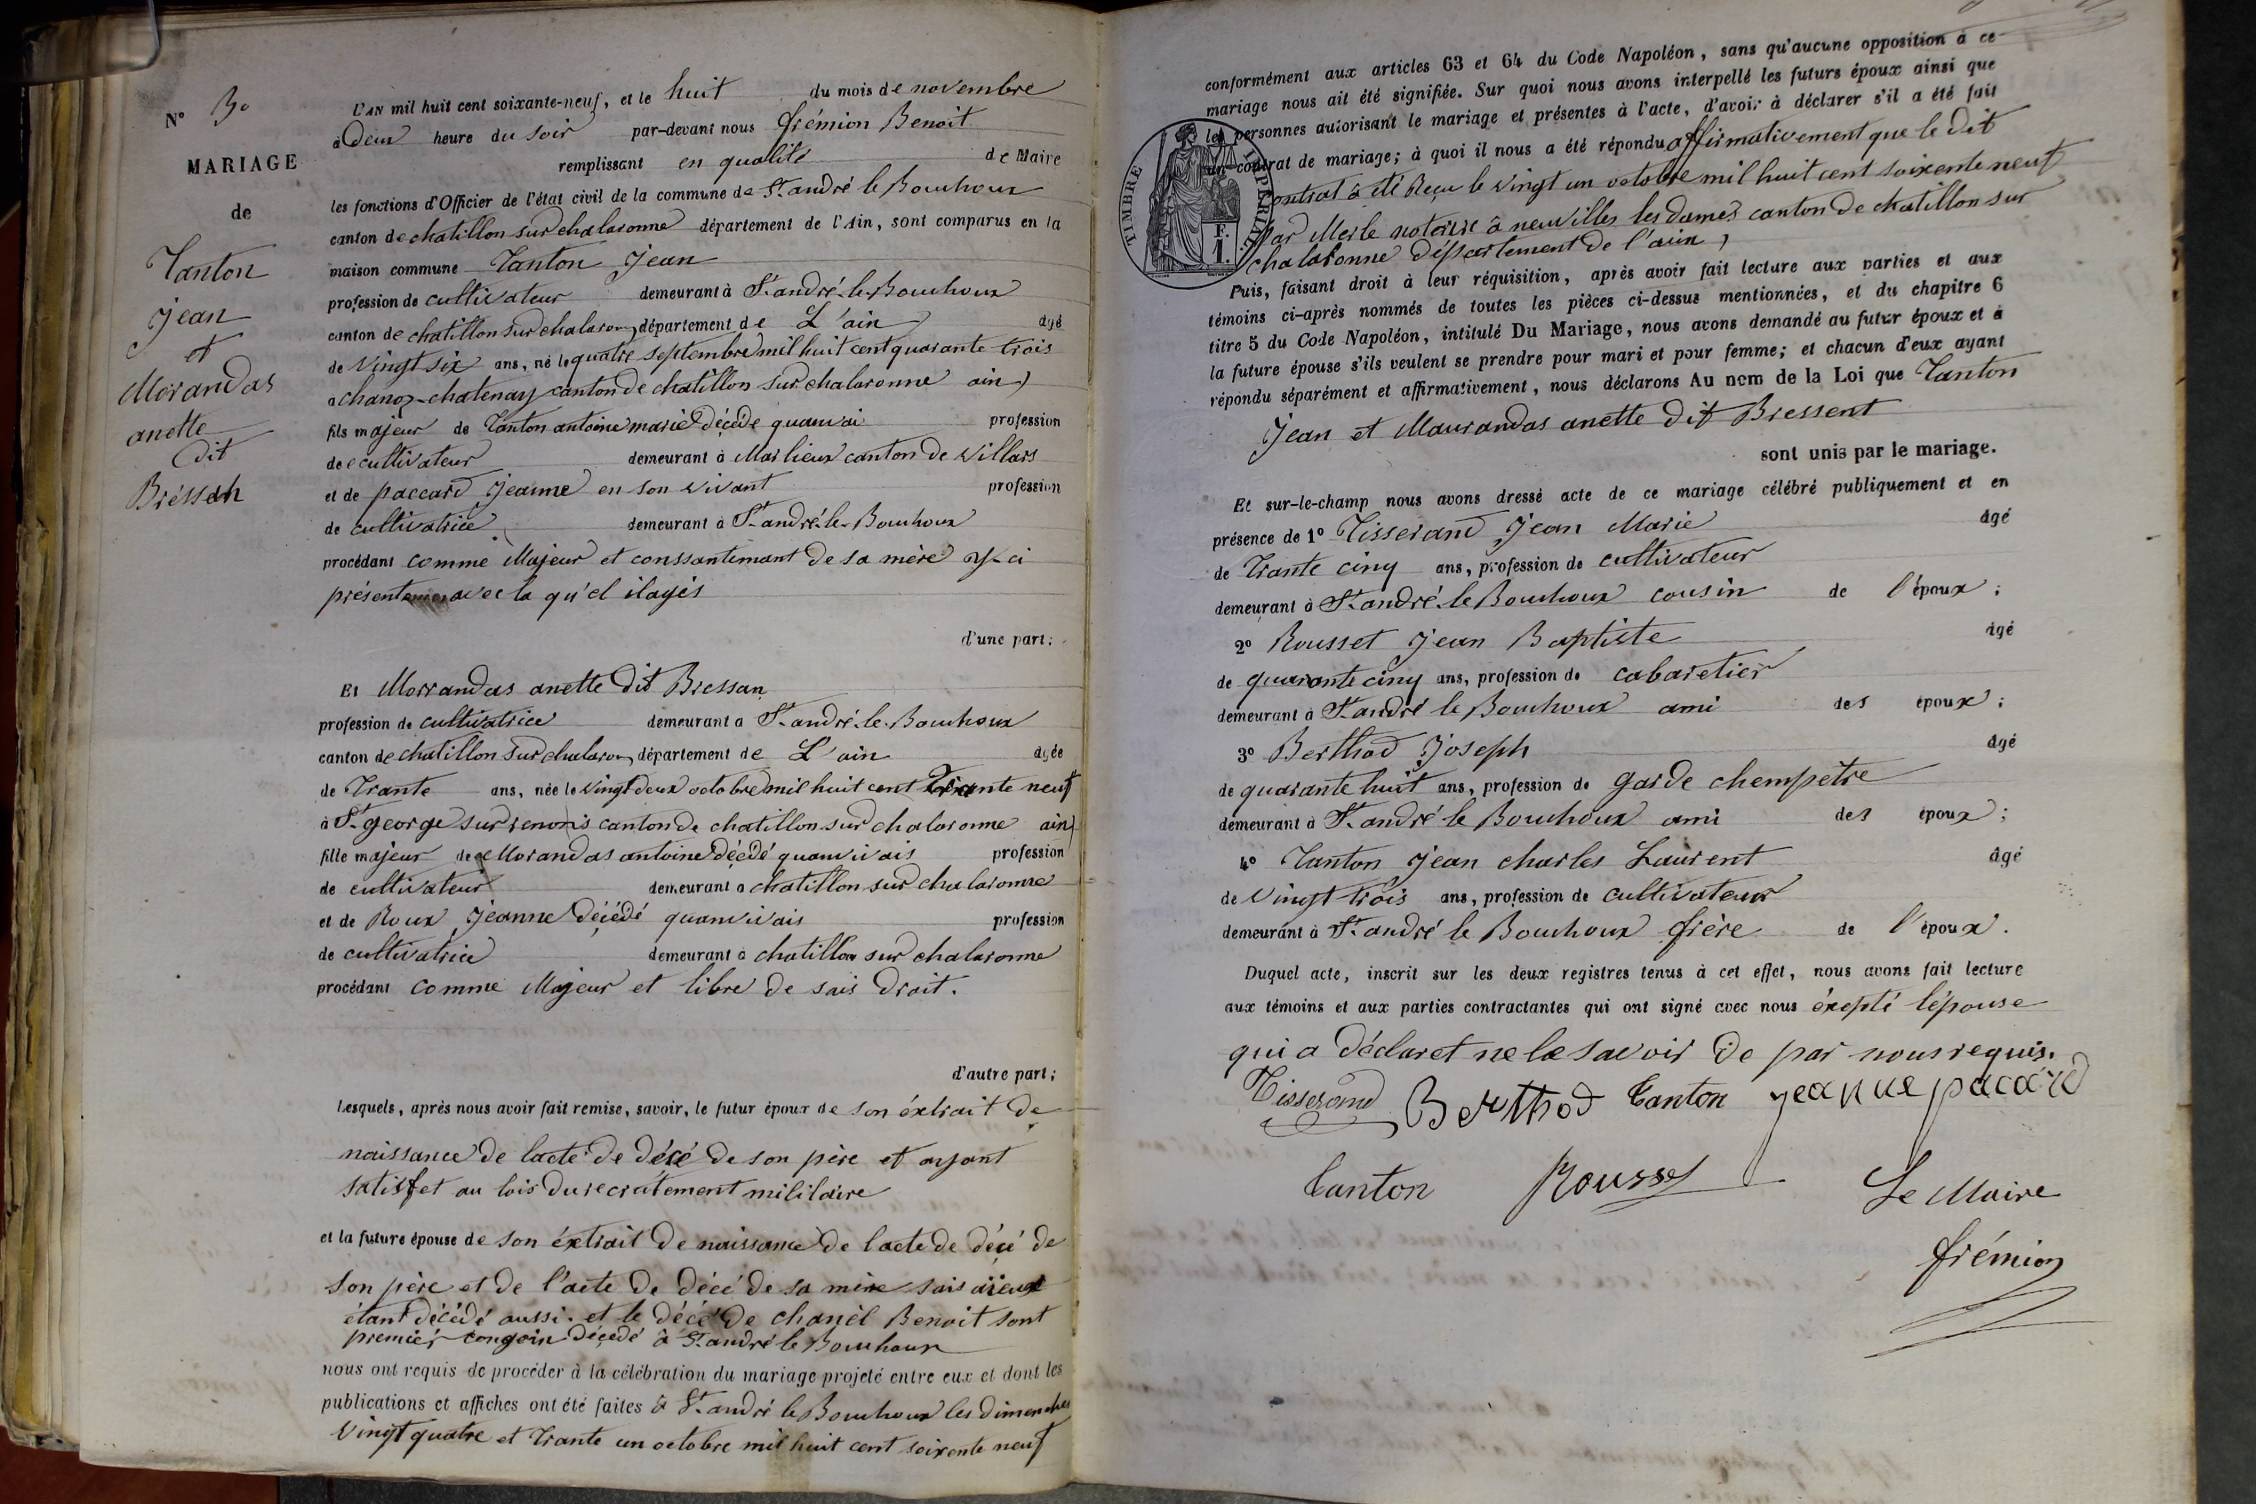 N° 30
MARIAGE
de
Tanton
Jean
et
Morandas
anette
dit
Bréssan
L'AN mil huit cent soixante-neuf, et le huit du mois de novembre
à Deux heure du soir par-devant nous frémion Benoit
remplissant en qualité de Maire
les fonctions d'Officier de l'état civil de la commune de St. andré le Bouchoux
canton de chatillon sur chalaronne département de l'Ain, sont comparus en la
maison commune Tanton Jean
profession de cultivateur demeurant à St. andré le Bouchoux
canton de chatillon sur chalaron, département de L'ain agé
de vingt six ans, né le quatre septembre mil huit cent quarante trois
a chanoz-chatenay canton de chatillon sur chalaronne ain)
fils majeur de Tanton antoine marie décéde quanvivai profession
de cultivateur demeurant à Marlieux canton de villars
et de paccard Jeanne en son vivant profession
de cultivatrice demeurant à St. andré-le-Bouchoux
procédant comme Majeur et conssantimant de sa mère y-ci
présente avec la qu'el ilagis
d'une part;
Et Morrandas anette dit Bressan
profession de cultivatrice demeurant a St. andré-le-Bouchoux
canton de chatillon sur chalaron, département de L'ain agée
de Trante ans, née le vingt deux octobre mil huit cent Trante neuf
à St. george sur renons canton de chatillon sur chalaronne ain)
fille majeur de Morandas antoine décédé quanvivais profession
de cultivateur demeurant a chatillon sur chalaronne
et de Roux Jeanne décédé quanvivais profession
de cultivatrice demeurant à chatillon sur chalaronne
procédant comme Majeur et libre de sais droit.
d'autre part;
Lesquels, après nous avoir fait remise, savoir, le futur époux de son éxtrait de
naissance de lacte de décé de son père et ayant
satisfet au lois du recrutement militaire
et la future épouse de son éxtrait de naissance de lacte de décé de
son père et de l'acte de décé de sa mère sais aïeux
étant décédé aussi. et le décé de chanel Benoit sont
premiér congoin décedé à St. andré le Bouchoux
nous ont requis de procéder à la célébration du mariage projeté entre eux et dont les
publications et affiches ont été faites à St. andré le Bouchoux les dimenches
vingt quatre et Trante un octobre mil huit cent soixente neuf
conformément aux articles 63 et 64 du Code Napoléon, sans qu'aucune opposition à ce
mariage nous ait été signifiée. Sur quoi nous avons interpellé les futurs époux ainsi que
les personnes autorisant le mariage et présentes à l'acte, d'avoir à déclarer s'il a été fait
un contrat de mariage; à quoi il nous a été répondu affirmativement que le dit
contrat à été Reçu le vingt un octobre mil huit cent soixente neuf
par Merle notaire à neuvilles les dames canton de chatillon sur
chalaronne département de l'ain,
TIMBRE IMPÉRIAL
F.
1.
Puis, faisant droit à leur réquisition, après avoir fait lecture aux parties et aux
témoins ci-après nommés de toutes les pièces ci-dessus mentionnées, et du chapitre 6
titre 5 du Code Napoléon, intitulé Du Mariage, nous avons demandé au futur époux et à
la future épouse s'ils veulent se prendre pour mari et pour femme; et chacun d'eux ayant
répondu séparément et affirmativement, nous déclarons Au nom de la Loi que Tanton
Jean et Maurandas anette dit Bressent
sont unis par le mariage.
Et sur-le-champ nous avons dressé acte de ce mariage célébré publiquement et en
présence de 1° Tisserand Jean Marie âgé
de Trante cinq ans, profession de cultivateur
demeurant à St. andré le Bouchoux cousin de l'époux;
2° Rousset Jean Baptiste âgé
de quarante cinq ans, profession de cabaretier
demeurant à St. andré le Bouchoux ami des époux;
3° Berthod Joseph âgé
de quarante huit ans, profession de garde chempetre
demeurant à St. andré le Bouchoux ami des époux;
4° Tanton Jean charles Laurent âgé
de vingt trois ans, profession de cultivateur
demeurant à St. andré le Bouchoux frère de l'époux.
Duquel acte, inscrit sur les deux registres tenus à cet effet, nous avons fait lecture
aux témoins et aux parties contractantes qui ont signé avec nous éxepté lépouse
qui a déclaret ne le savoir de par nous requis.
Tisserand Berthod Tanton jeanne pacard
Tanton Rousset Le Maire
frémion